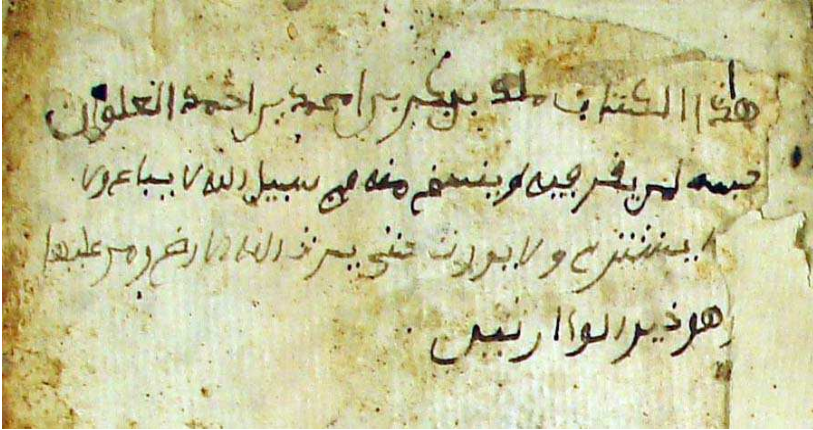 هذا الكتاب ملك بكير بن امحمد بن احمد العلواني
حبسه لمن يقر فيه او ينسخ منه في سبيل الله لا يباع ولا
لا يشترى ولا يورث حتى يرث الله الارض ومن عليها
وهو خير الوارثين